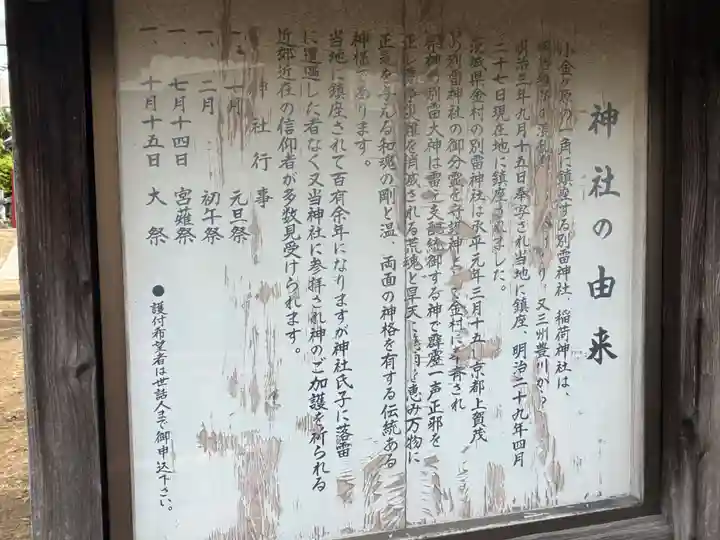 神社の由来
小金ヶ原の一角に鎮座する別雷神社、稲荷神社は、
り、又三州豊川から
明治三年九月十五日奉写され当地に鎮座、明治二十九年四月
二十七日現在地に鎮座されました。
茨城県金村の別雷神社は永平元年三月十五日京都上賀茂
の別雷神社の御分霊を守護神として金村に奉斎され
祭神の別雷大神は雷を支配統御する神で霹靂一声正邪を
正し災難を消滅される荒魂と旱天に慈雨を恵み万物に
正気を与える和魂の剛と温、両面の神格を有する伝統ある
神様であります。
当地に鎮座されて百有余年になりますが神社氏子に落雷
に遭遇した者なく又当神社に参拝され神のご加護を祈られる
近郊近在の信仰者が多数見受けられます。
神社行事
一、一月 元旦祭
一、二月 初午祭
一、七月十四日 宮薙祭
一、十月十五日 大祭
●護付希望者は世話人まで御申込下さい。